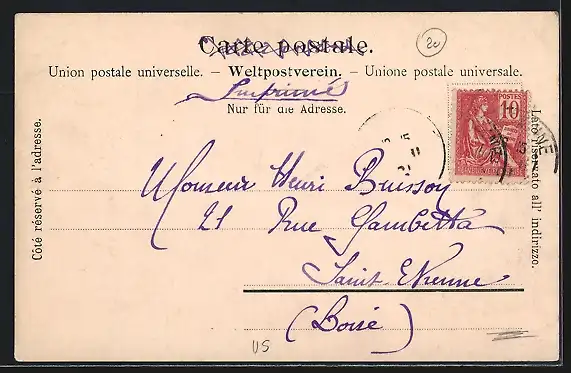 Carte postale.
20
Union postale universelle. – Weltpostverein. – Unione postale universale.
Imprimé
Nur für die Adresse.
Côté réservé à l'adresse.
Lato riservato all' indirizzo.
10
15
11
Monsieur Henri Buisson
21 Rue Gambetta
Saint Etienne
(Loire)
US